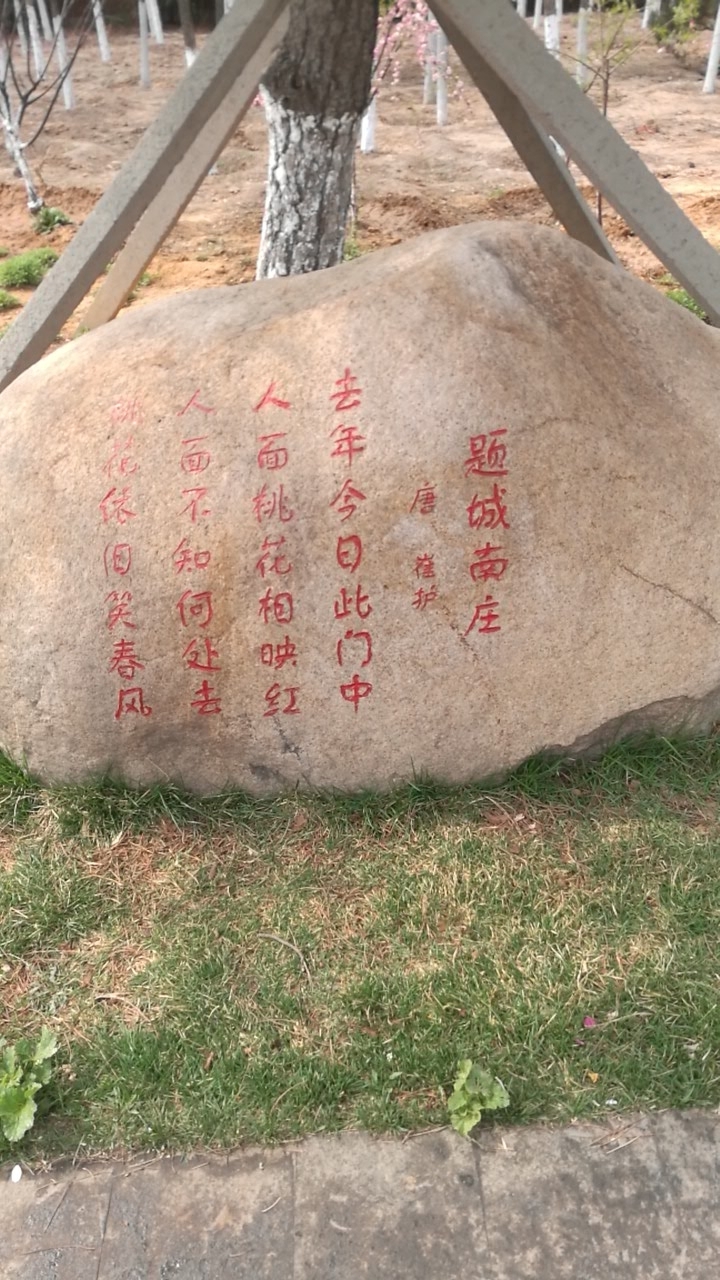 题城南庄
唐 崔护
去年今日此门中
人面桃花相映红
人面不知何处去
桃花依旧笑春风